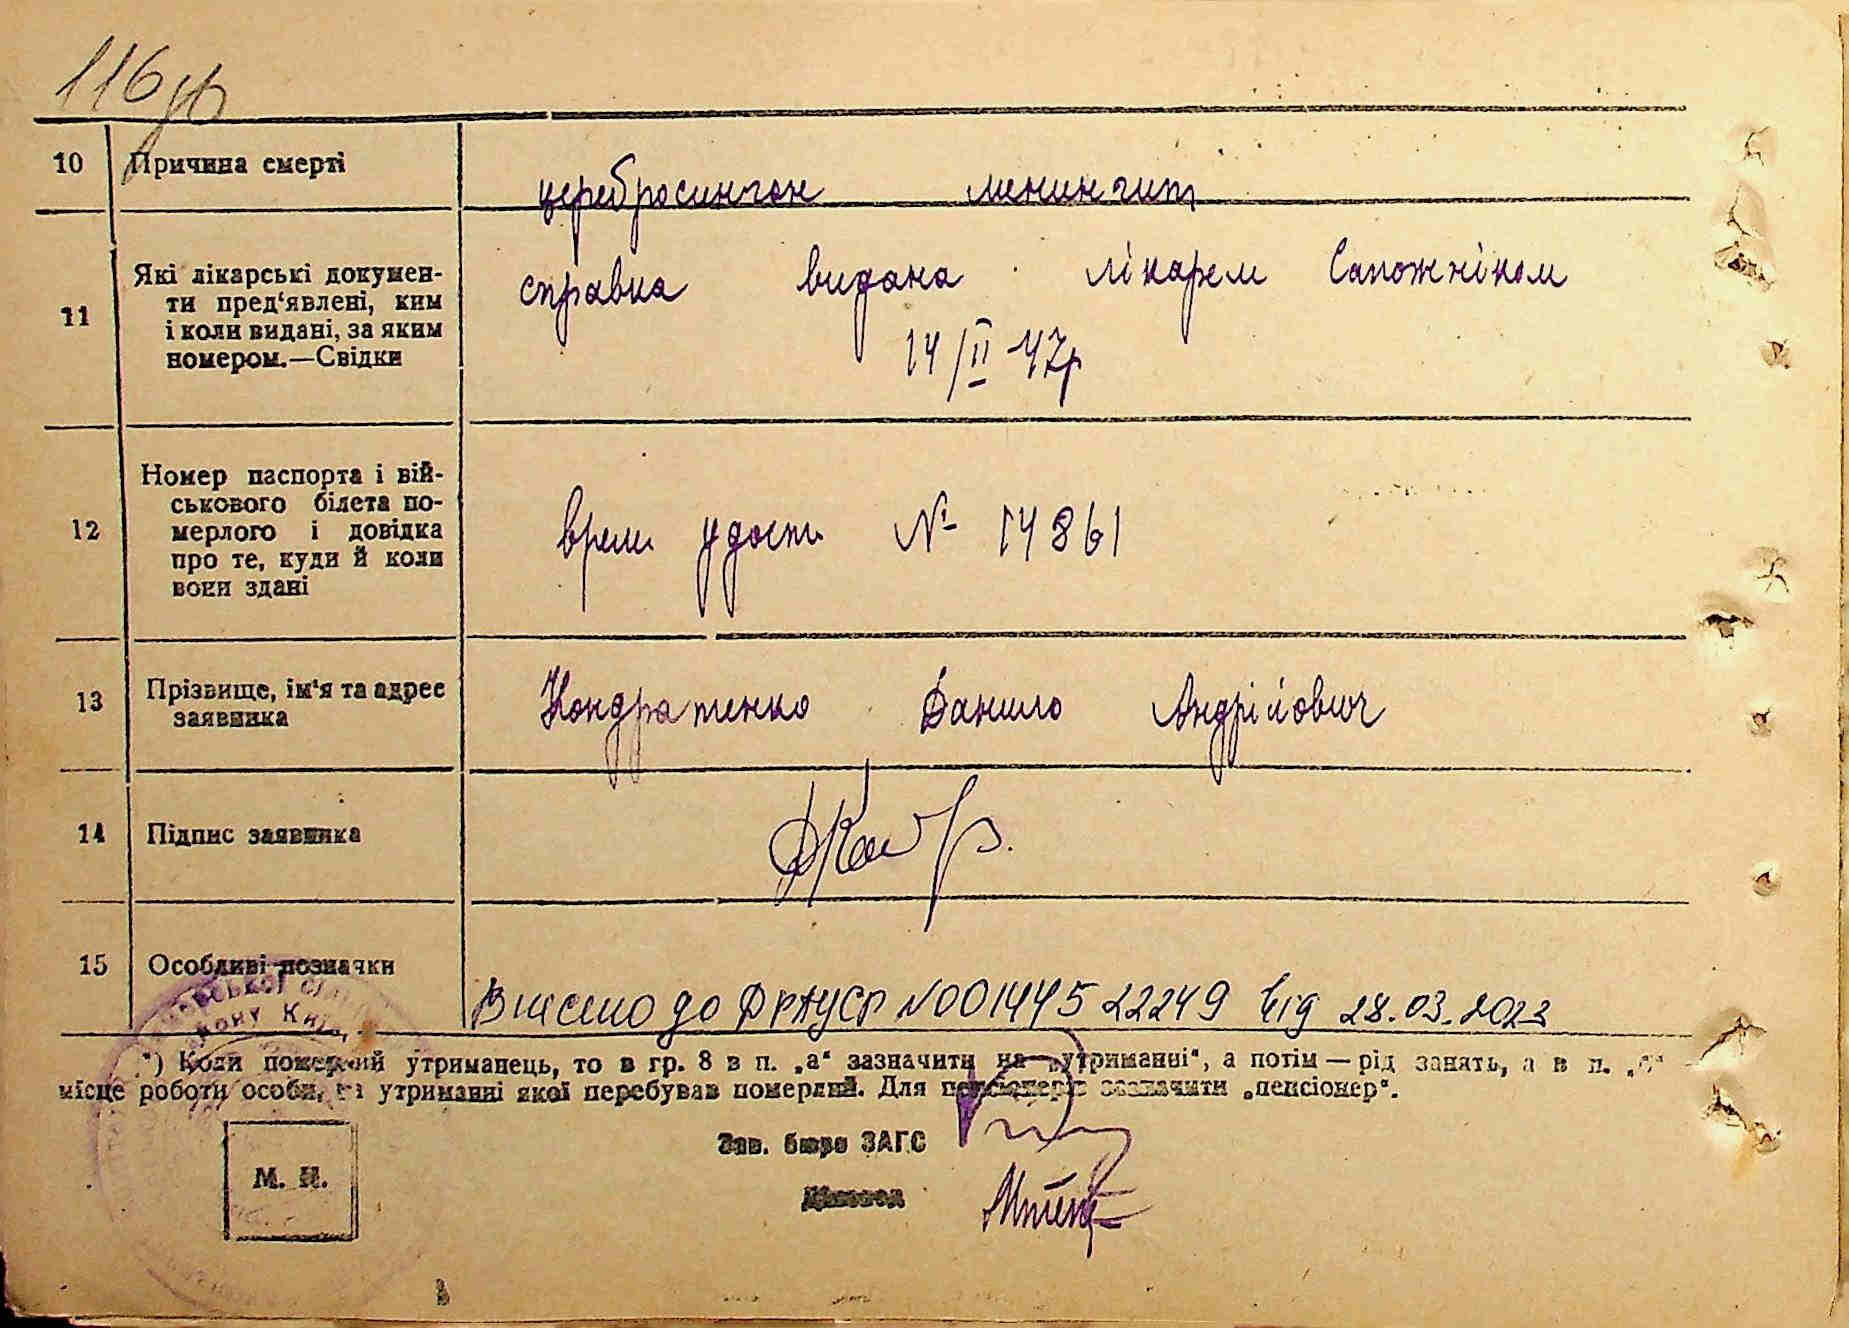 116
10 Причина смерті
церебросингон менингит
11 Які лікарські докумен-
ти пред‘явлені, ким
і коли видані, за яким
номером.—Свідки
справка видана лікарем Сапожніком
14/II 47р
12 Номер паспорта і вій-
ськового білета по-
мерлого і довідка
про те, куди й коли
вони здані
врем. удост. № 14861
13 Прізвище, ім‘я та адрес
заявника
Кондратенко Данило Андрійович
14 Підпис заявника
15 Особливі позначки
Внесено до ДРАЦСГ №00144522249 від 28.03.2023
*) Коли померлий утриманець, то в гр. 8 в п. „а“ зазначити на „утриманні“, а потім — рід занять, а в п.
місце роботи особи, на утриманні якої перебував померлий. Для пенсіонерів зазначити „пенсіонер“.
Зав. бюро ЗАГС
М. П.
Діловод